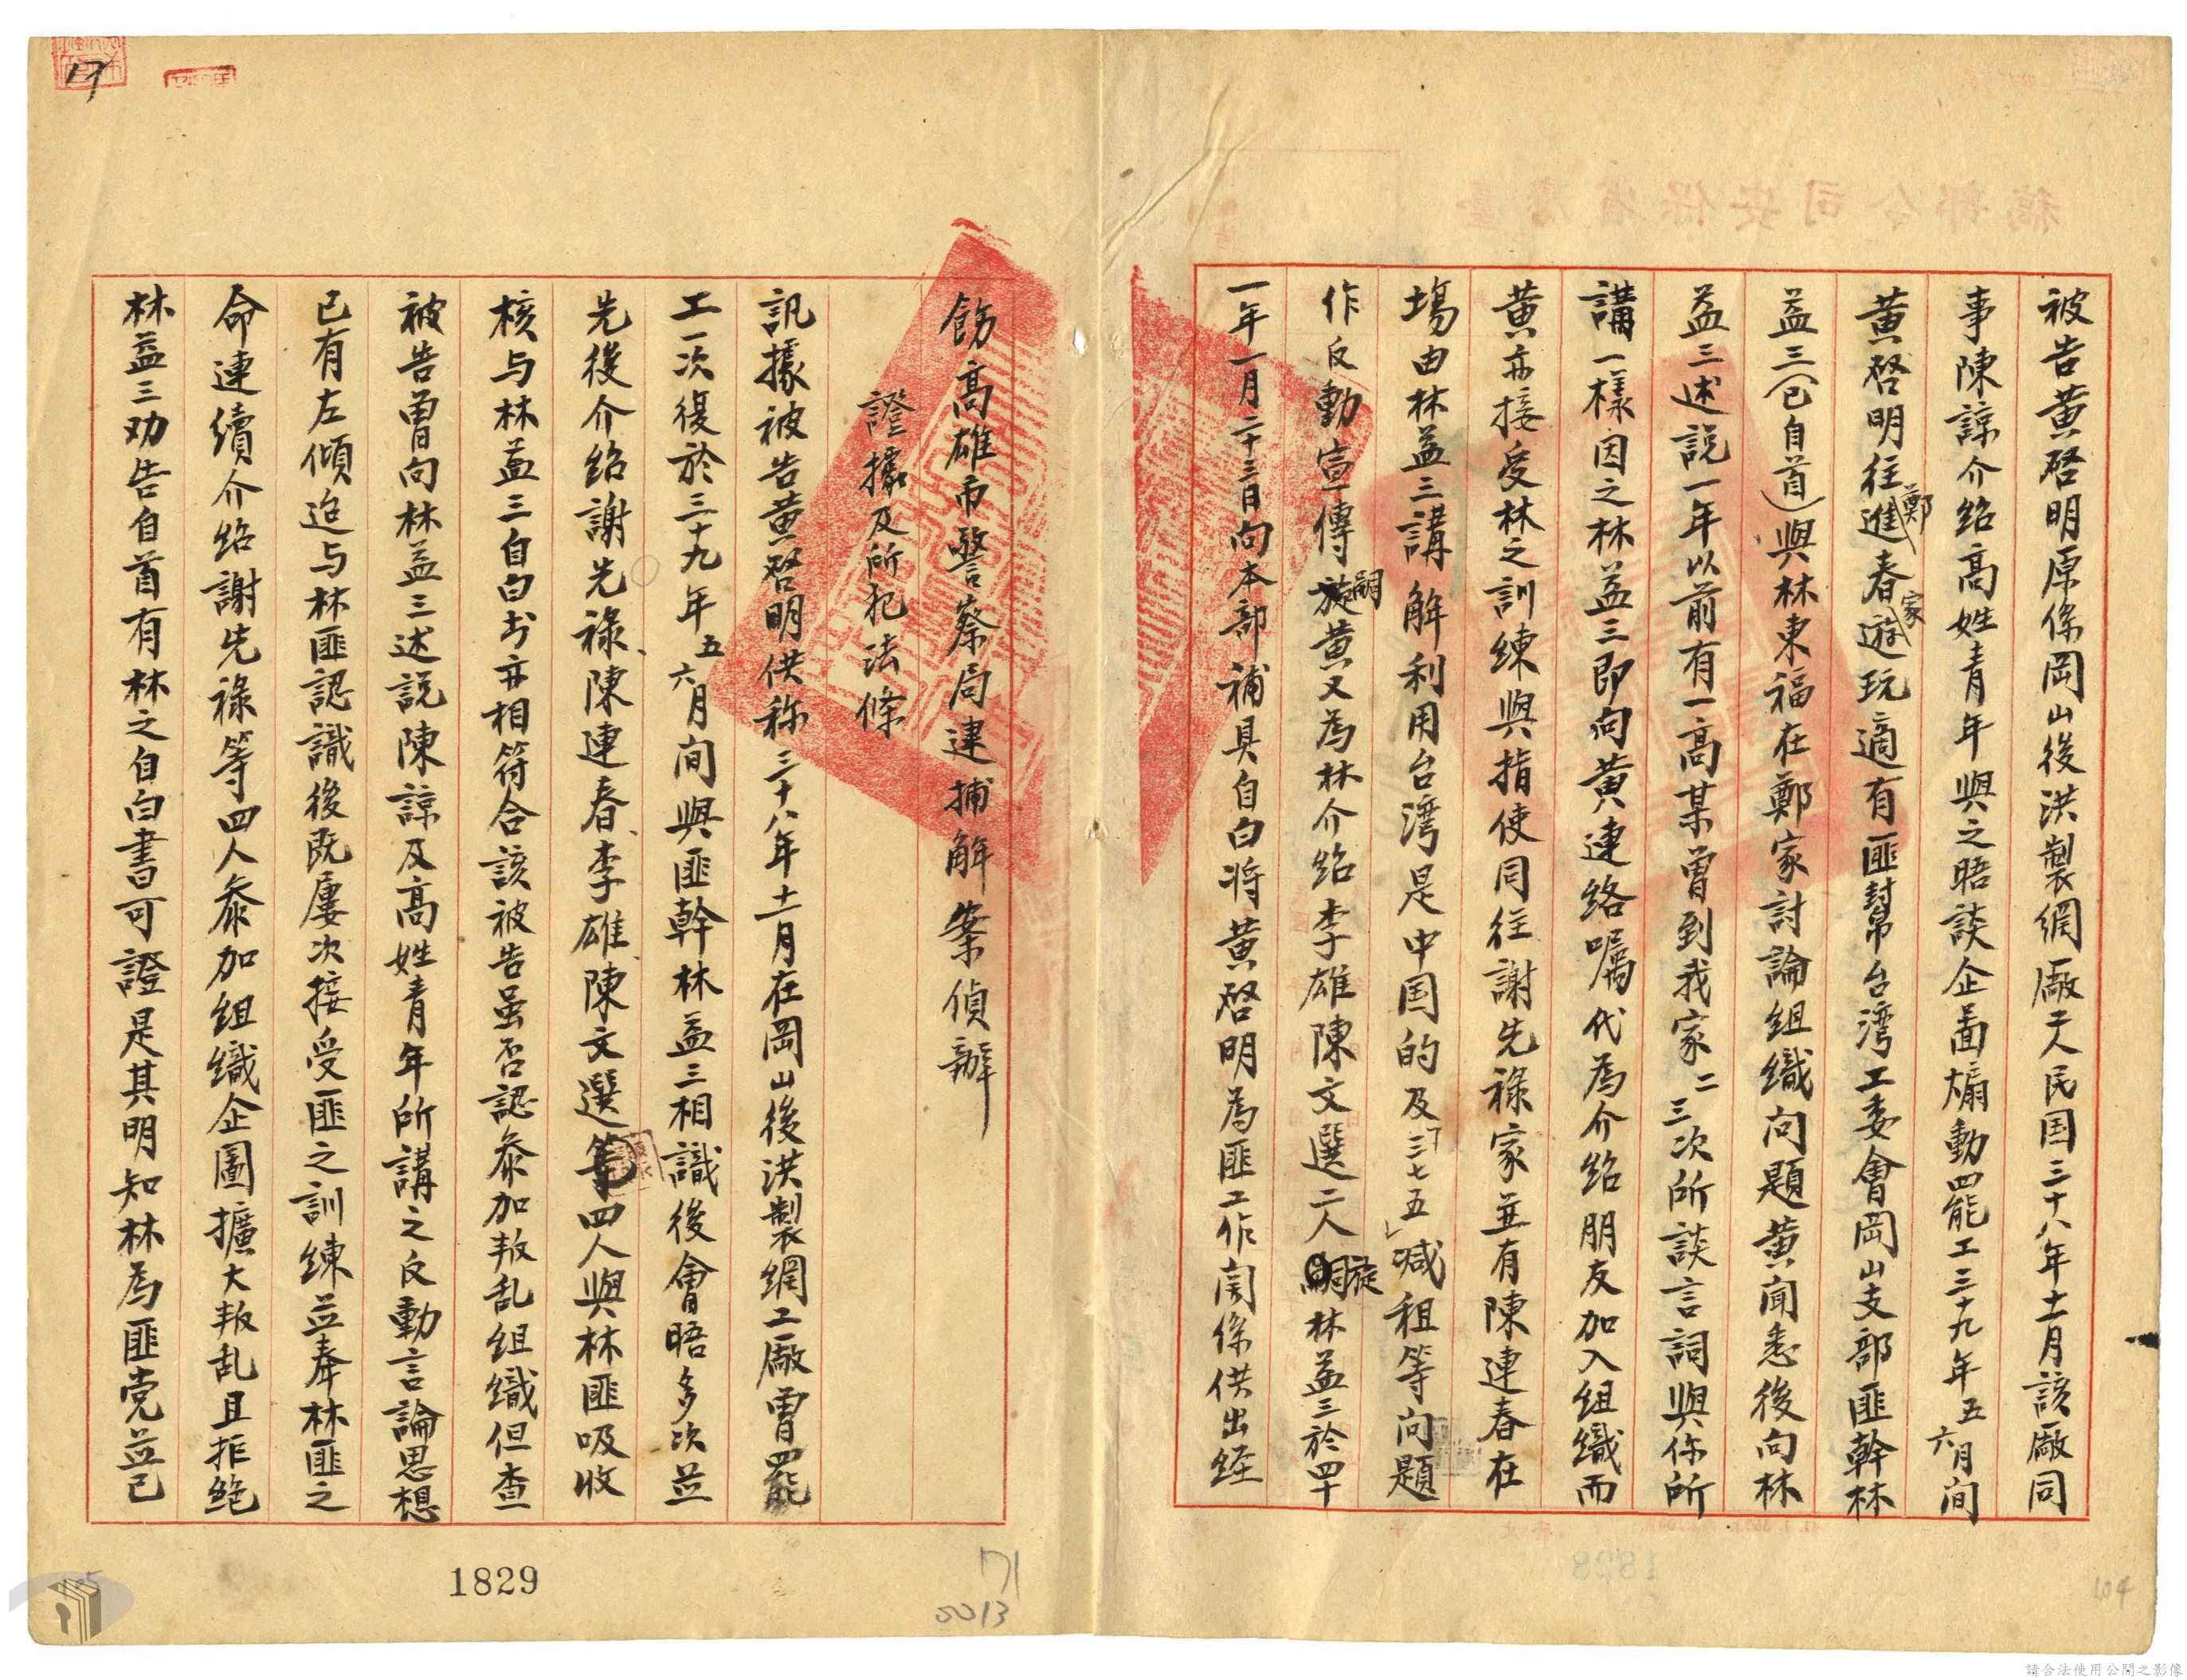 被告黄啓明原係岡山後洪製網廠工人民国三十八年十一月該廠同
事陳諒介紹高姓青年與之晤談企啚煽動罷工三十九年五六月间
黄啓明往鄭進春家遊玩適有匪幫台湾工委會岡山支部匪幹林
益三(已自首)與林東福在鄭家討論組織问題黄闻悉後向林
益三述説一年以前有一高某曽到我家二三次所談言詞與你所
講一樣因之林益三即向黄連絡嘱代為介紹朋友加入組織而
黄亦接受林之訓練與指使同往謝先祿家並有陳連春在
塲由林益三講解利用台湾是中国的及「三七五」減租等问題
作反動宣傳嗣黄又為林介紹李雄陳文選二人旋林益三於四十
一年一月二十三日向本部補具自白将黄啓明為匪工作関係供出経
飭高雄市警察局逮捕解案偵辦
證據及所犯法條
訊據被告黄啓明供称三十八年十一月在岡山後洪製網工廠曽罷
工一次復於三十九年五六月间與匪幹林益三相識後會晤多次並
先後介紹謝先祿、陳連春、李雄、陳文選等四人與林匪吸收
核与林益三自白书亦相符合該被告虽否認叅加叛乱組織但查
被告曽向林益三述説陳諒及高姓青年所講之反動言論思想
已有左傾迨与林匪認識後既屢次接受匪之訓練並奉林匪之
命連續介紹謝先祿等四人叅加組織企圖擴大叛乱且拒絶
林益三劝告自首有林之自白書可證是其明知林為匪党並已
1829
71
0013
104
請合法使用公開之影像